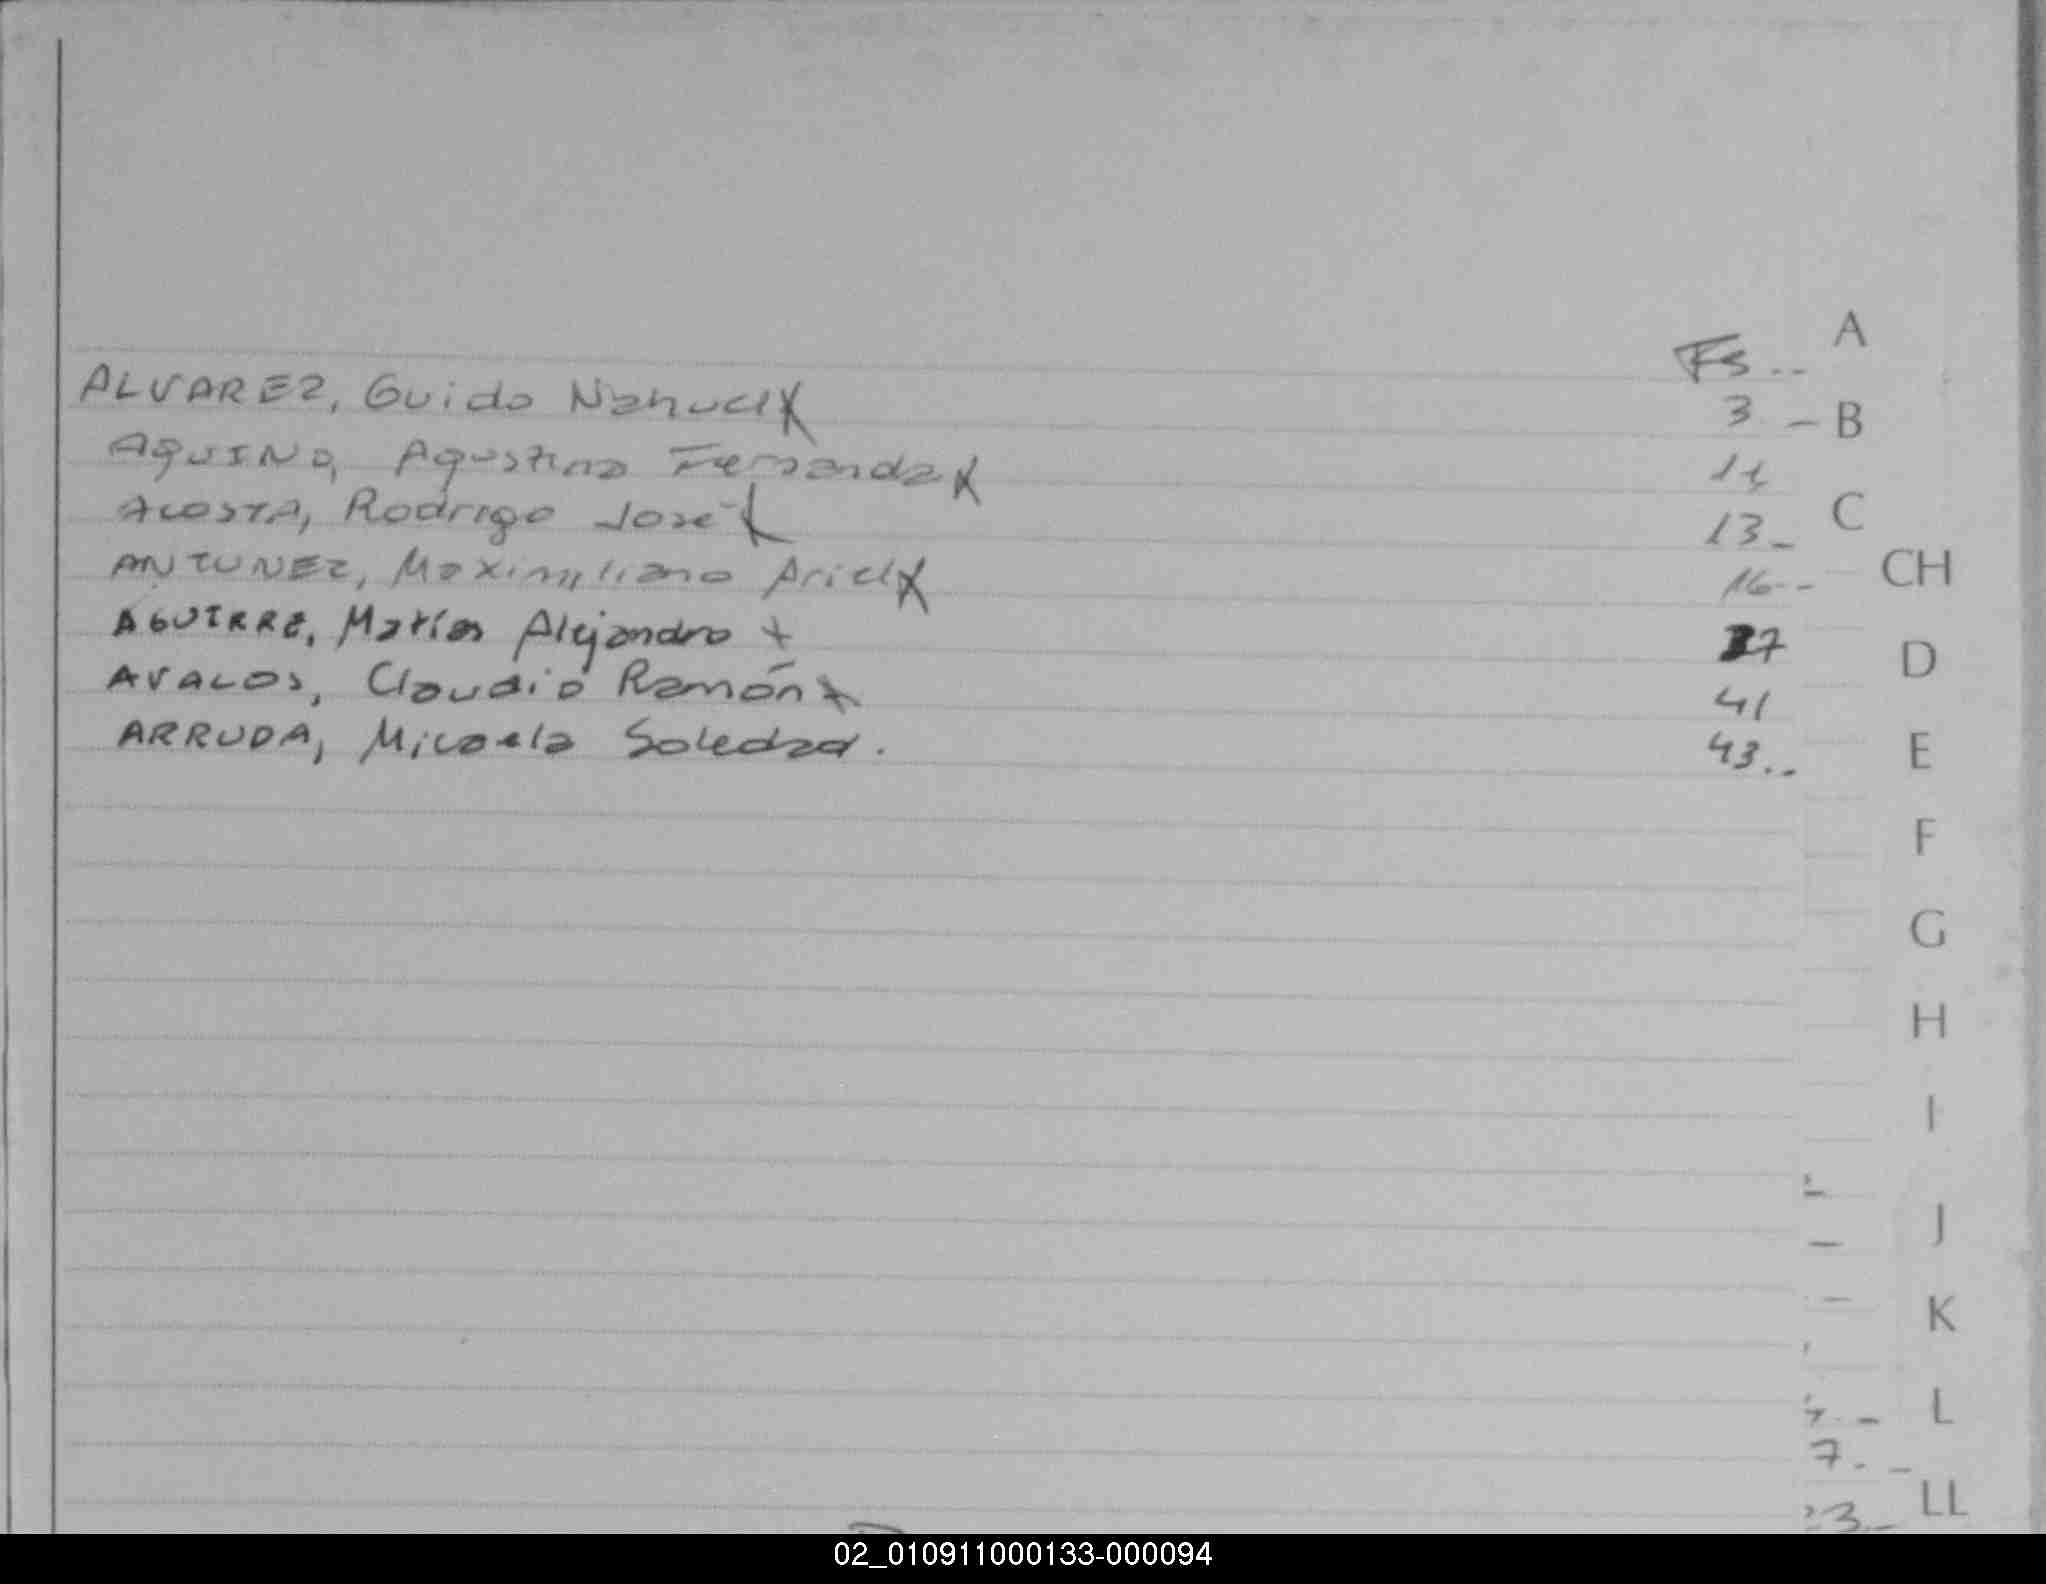 Fs.. A
ALVAREZ, Guido Nahuel X 3 - B
AQUINO, Agustina Fernanda X 11
ACOSTA, Rodrigo José X 13_ C
ANTUNEZ, Maximiliano Ariel X 16-- CH
AGUIRRE, Matías Alejandro + 37 D
AVALOS, Claudio Ramón + 41
ARRUDA, Micaela Soledad. 43.. E
F
G
H
I
J
K
L
7. _
3._ LL
02_010911000133-000094